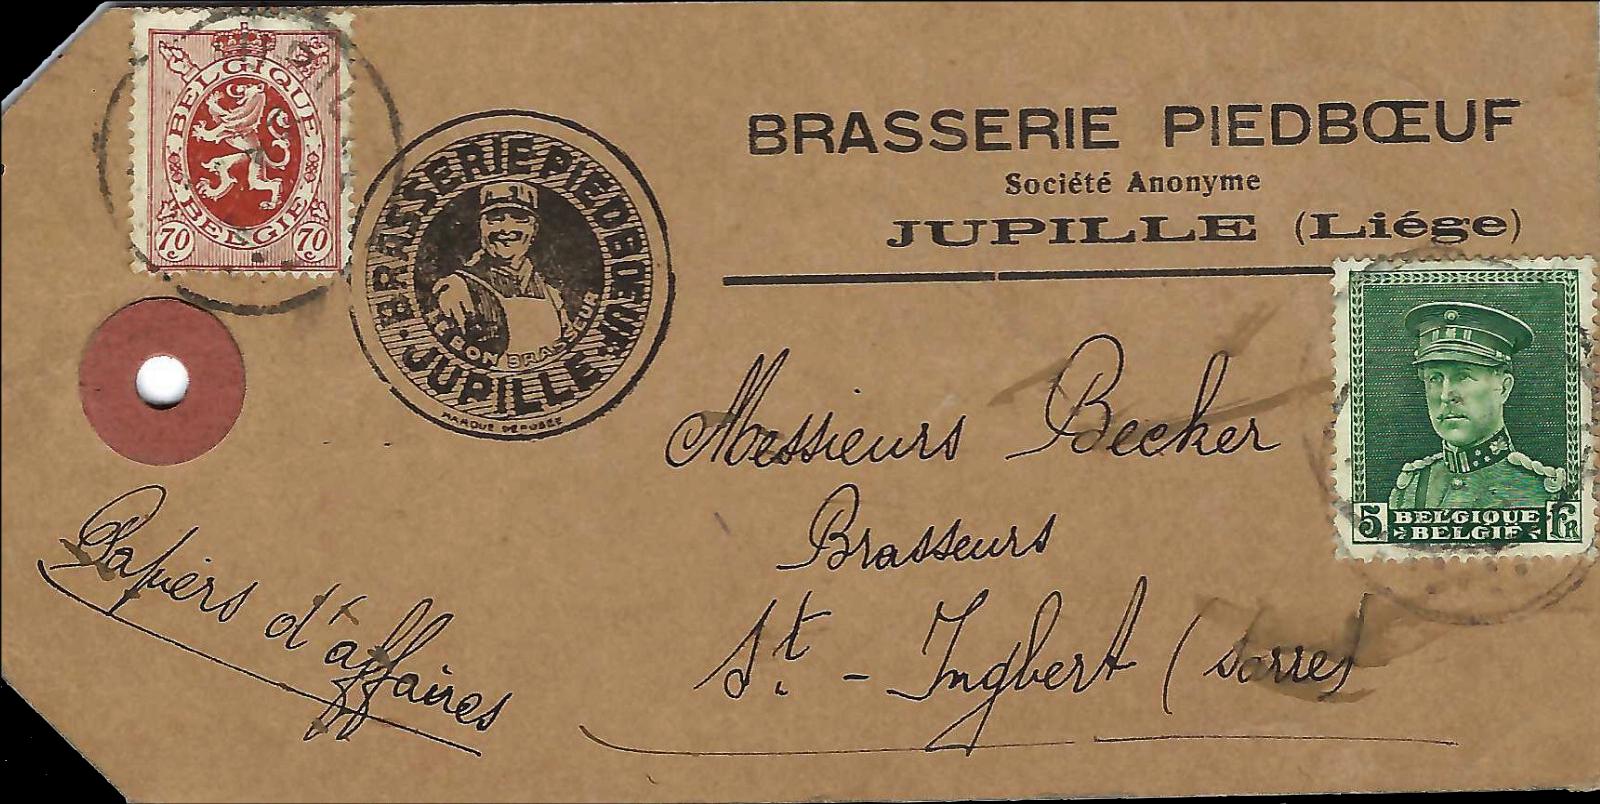 BELGIQUE
BELGIE
70 70
BRASSERIE PIEDBŒUF
Société Anonyme
JUPILLE (Liége)
BRASSERIE PIEDBOEUF
LE BON BRASSEUR
JUPILLE
MARQUE DEPOSEE
5 BELGIQUE FR
BELGIE
Messieurs Becker
Brasseurs
St. - Ingbert (Sarre)
Papiers d'affaires